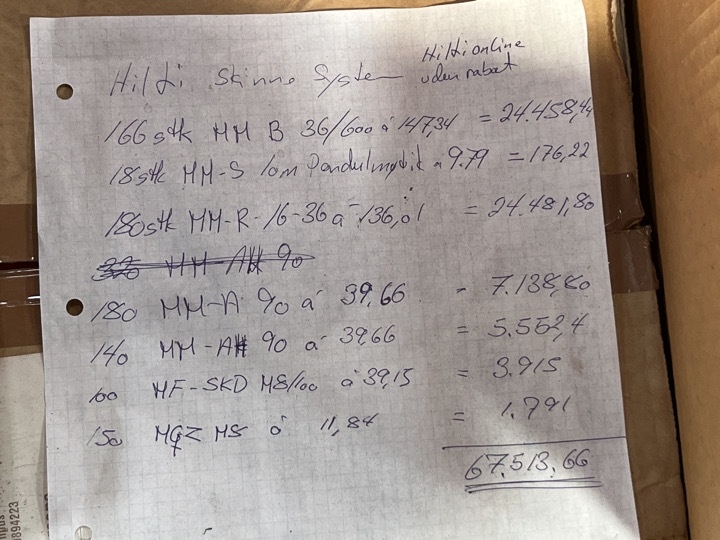 Hilti Skinne System
Hilti online
uden rabat
166 stk MM B 36/600 á 147,34 = 24.458,44
18 stk MM-S lom Pendulmøtrik á 9.79 = 176,22
180 stk MM-R-16-36 á 136,01 = 24.481,80
320 MM-AH 90
180 MM-A 90 á 39,66 = 7.138,80
140 MM-AH 90 á 39,66 = 5.552,4
100 MF-SKD M8/100 á 39,15 = 3.915
150 MQZ M8 á 11,84 = 1.791
67.513.66
894223